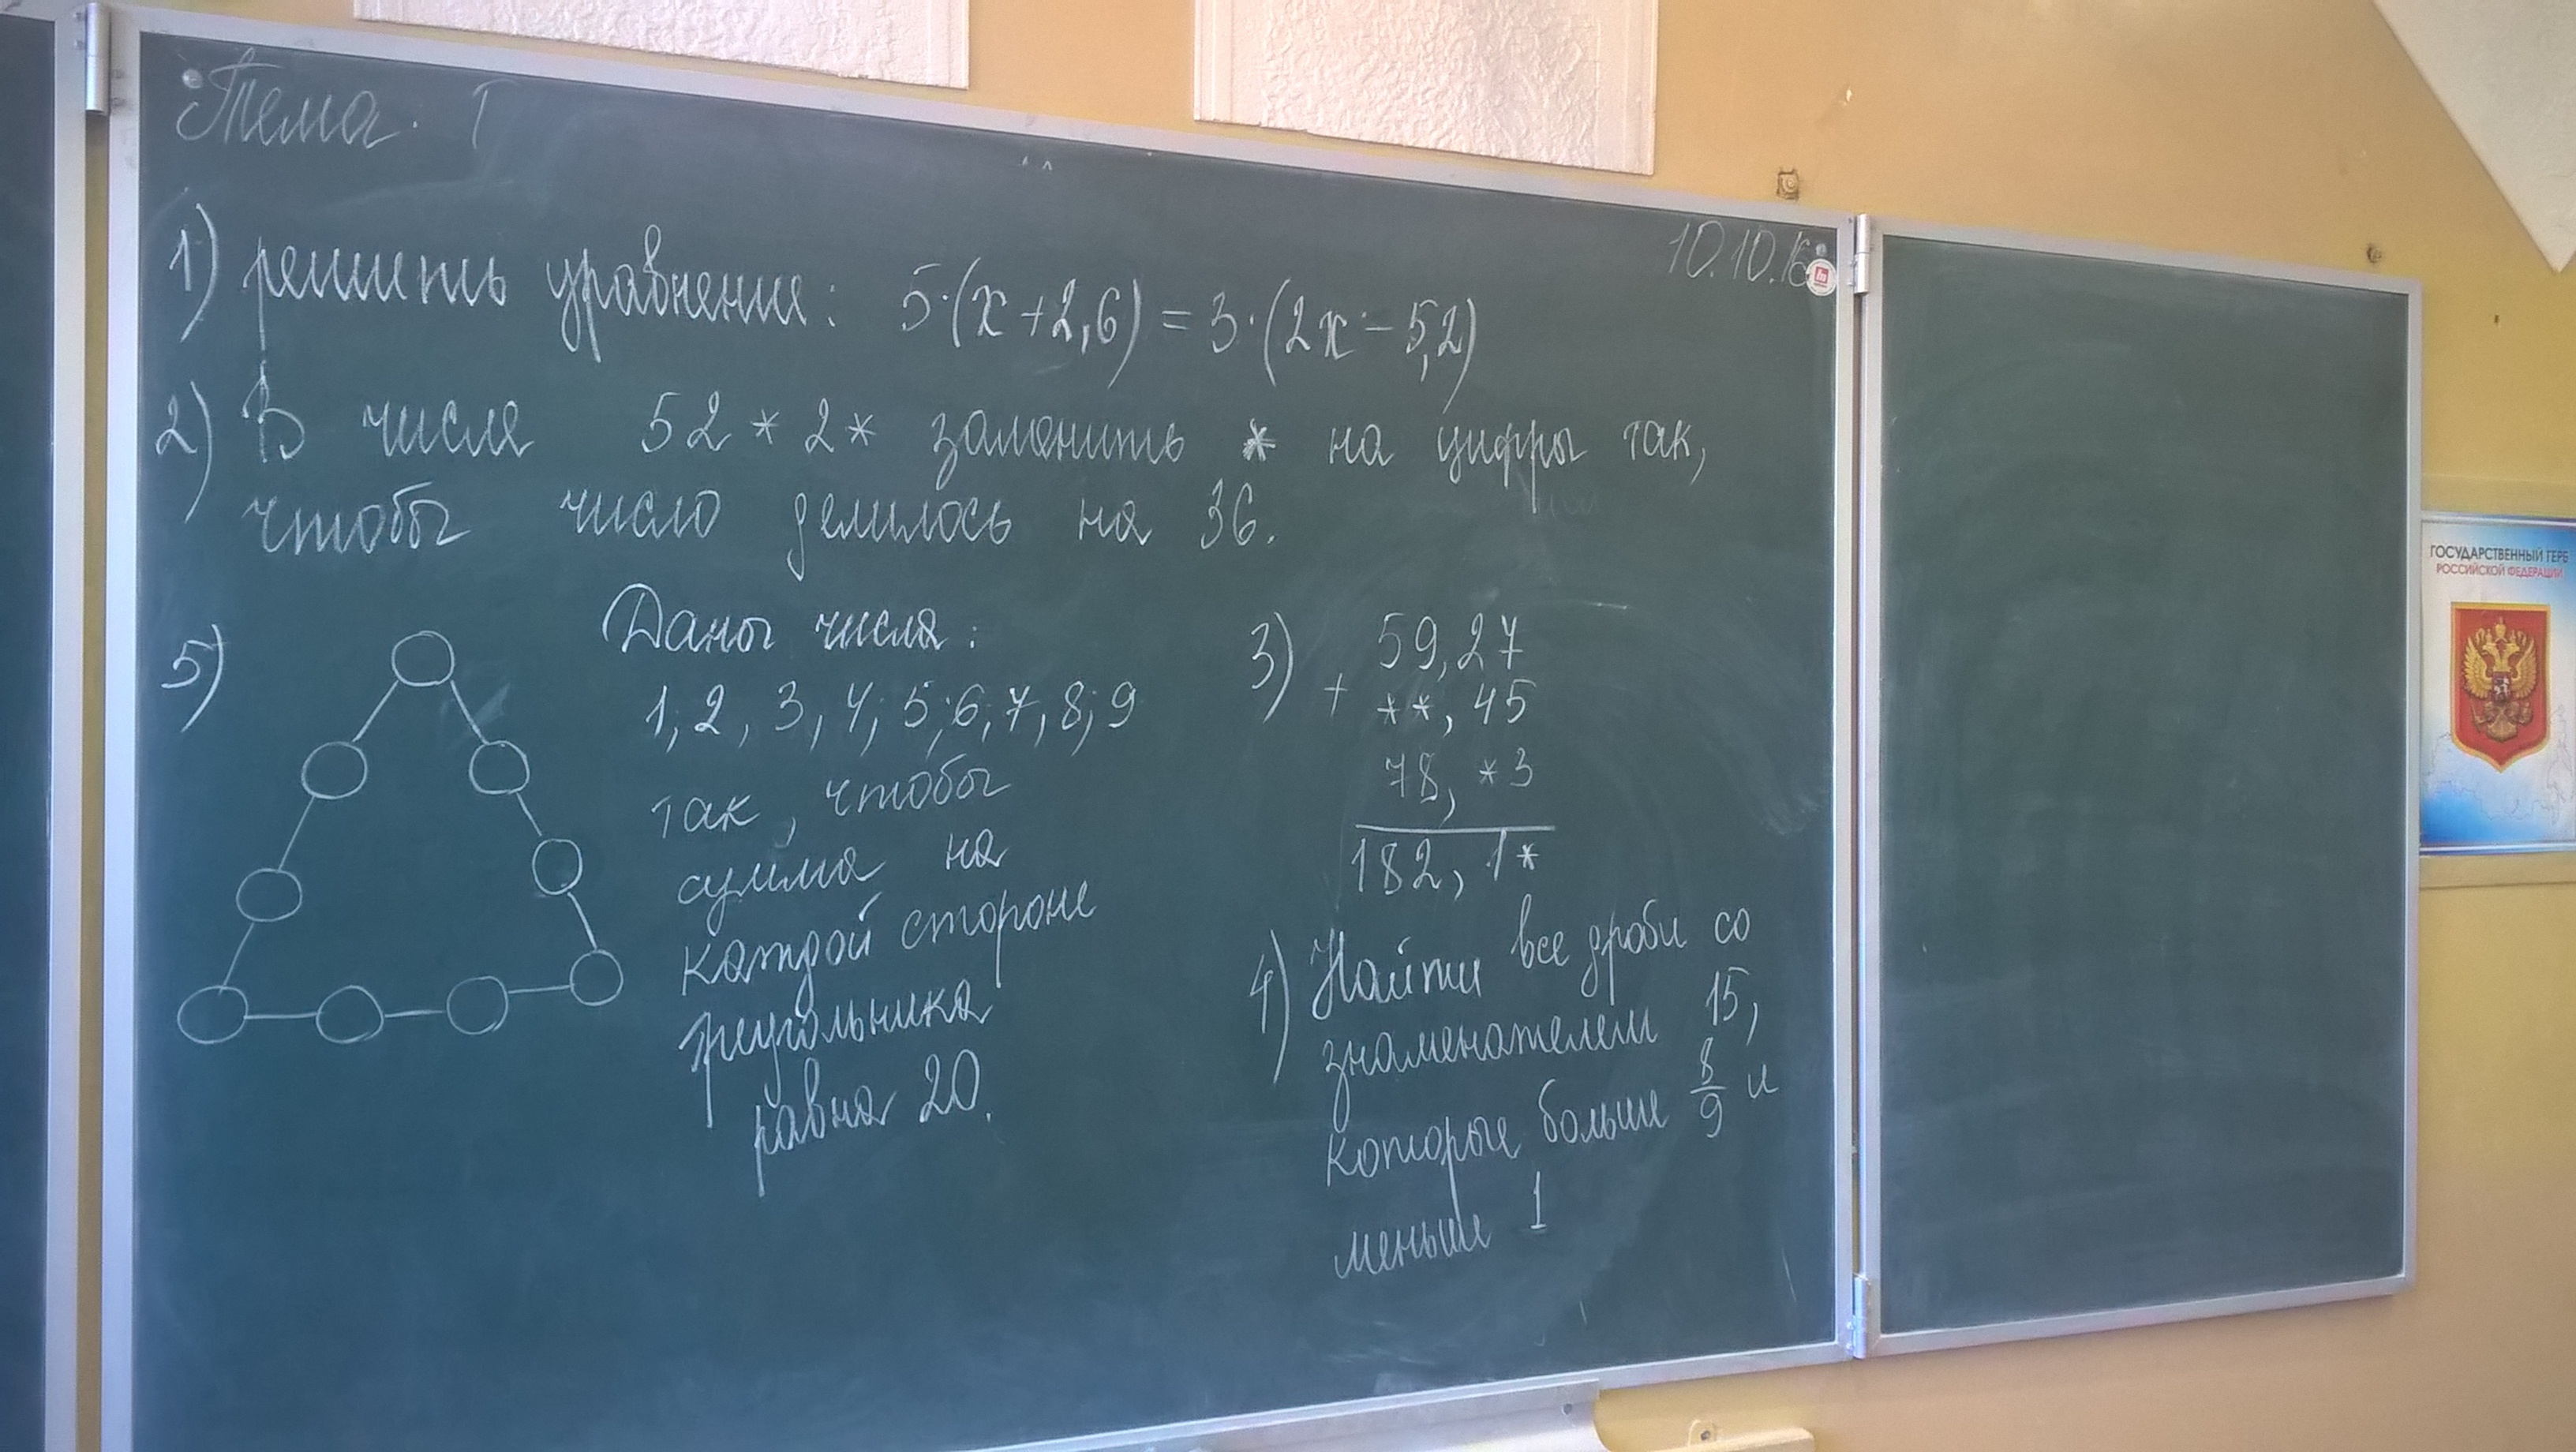 Тема. Т
10.10.16
1) решить уравнение: 5·(x+2,6) = 3·(2x-5,2)
2) В числе 52*2* заменить * на цифры так,
чтобы число делилось на 36.
5) Даны числа:
1, 2, 3, 4; 5; 6, 7, 8; 9
так, чтобы
сумма на
каждой стороне
треугольника
равна 20.
3) 59,27
+ **,45
78,*3
182,1*
4) Найти все дроби со
знаменателем 15,
которые больше 8/9 и
меньше 1
ГОСУДАРСТВЕННЫЙ ГЕРБ
РОССИЙСКОЙ ФЕДЕРАЦИИ